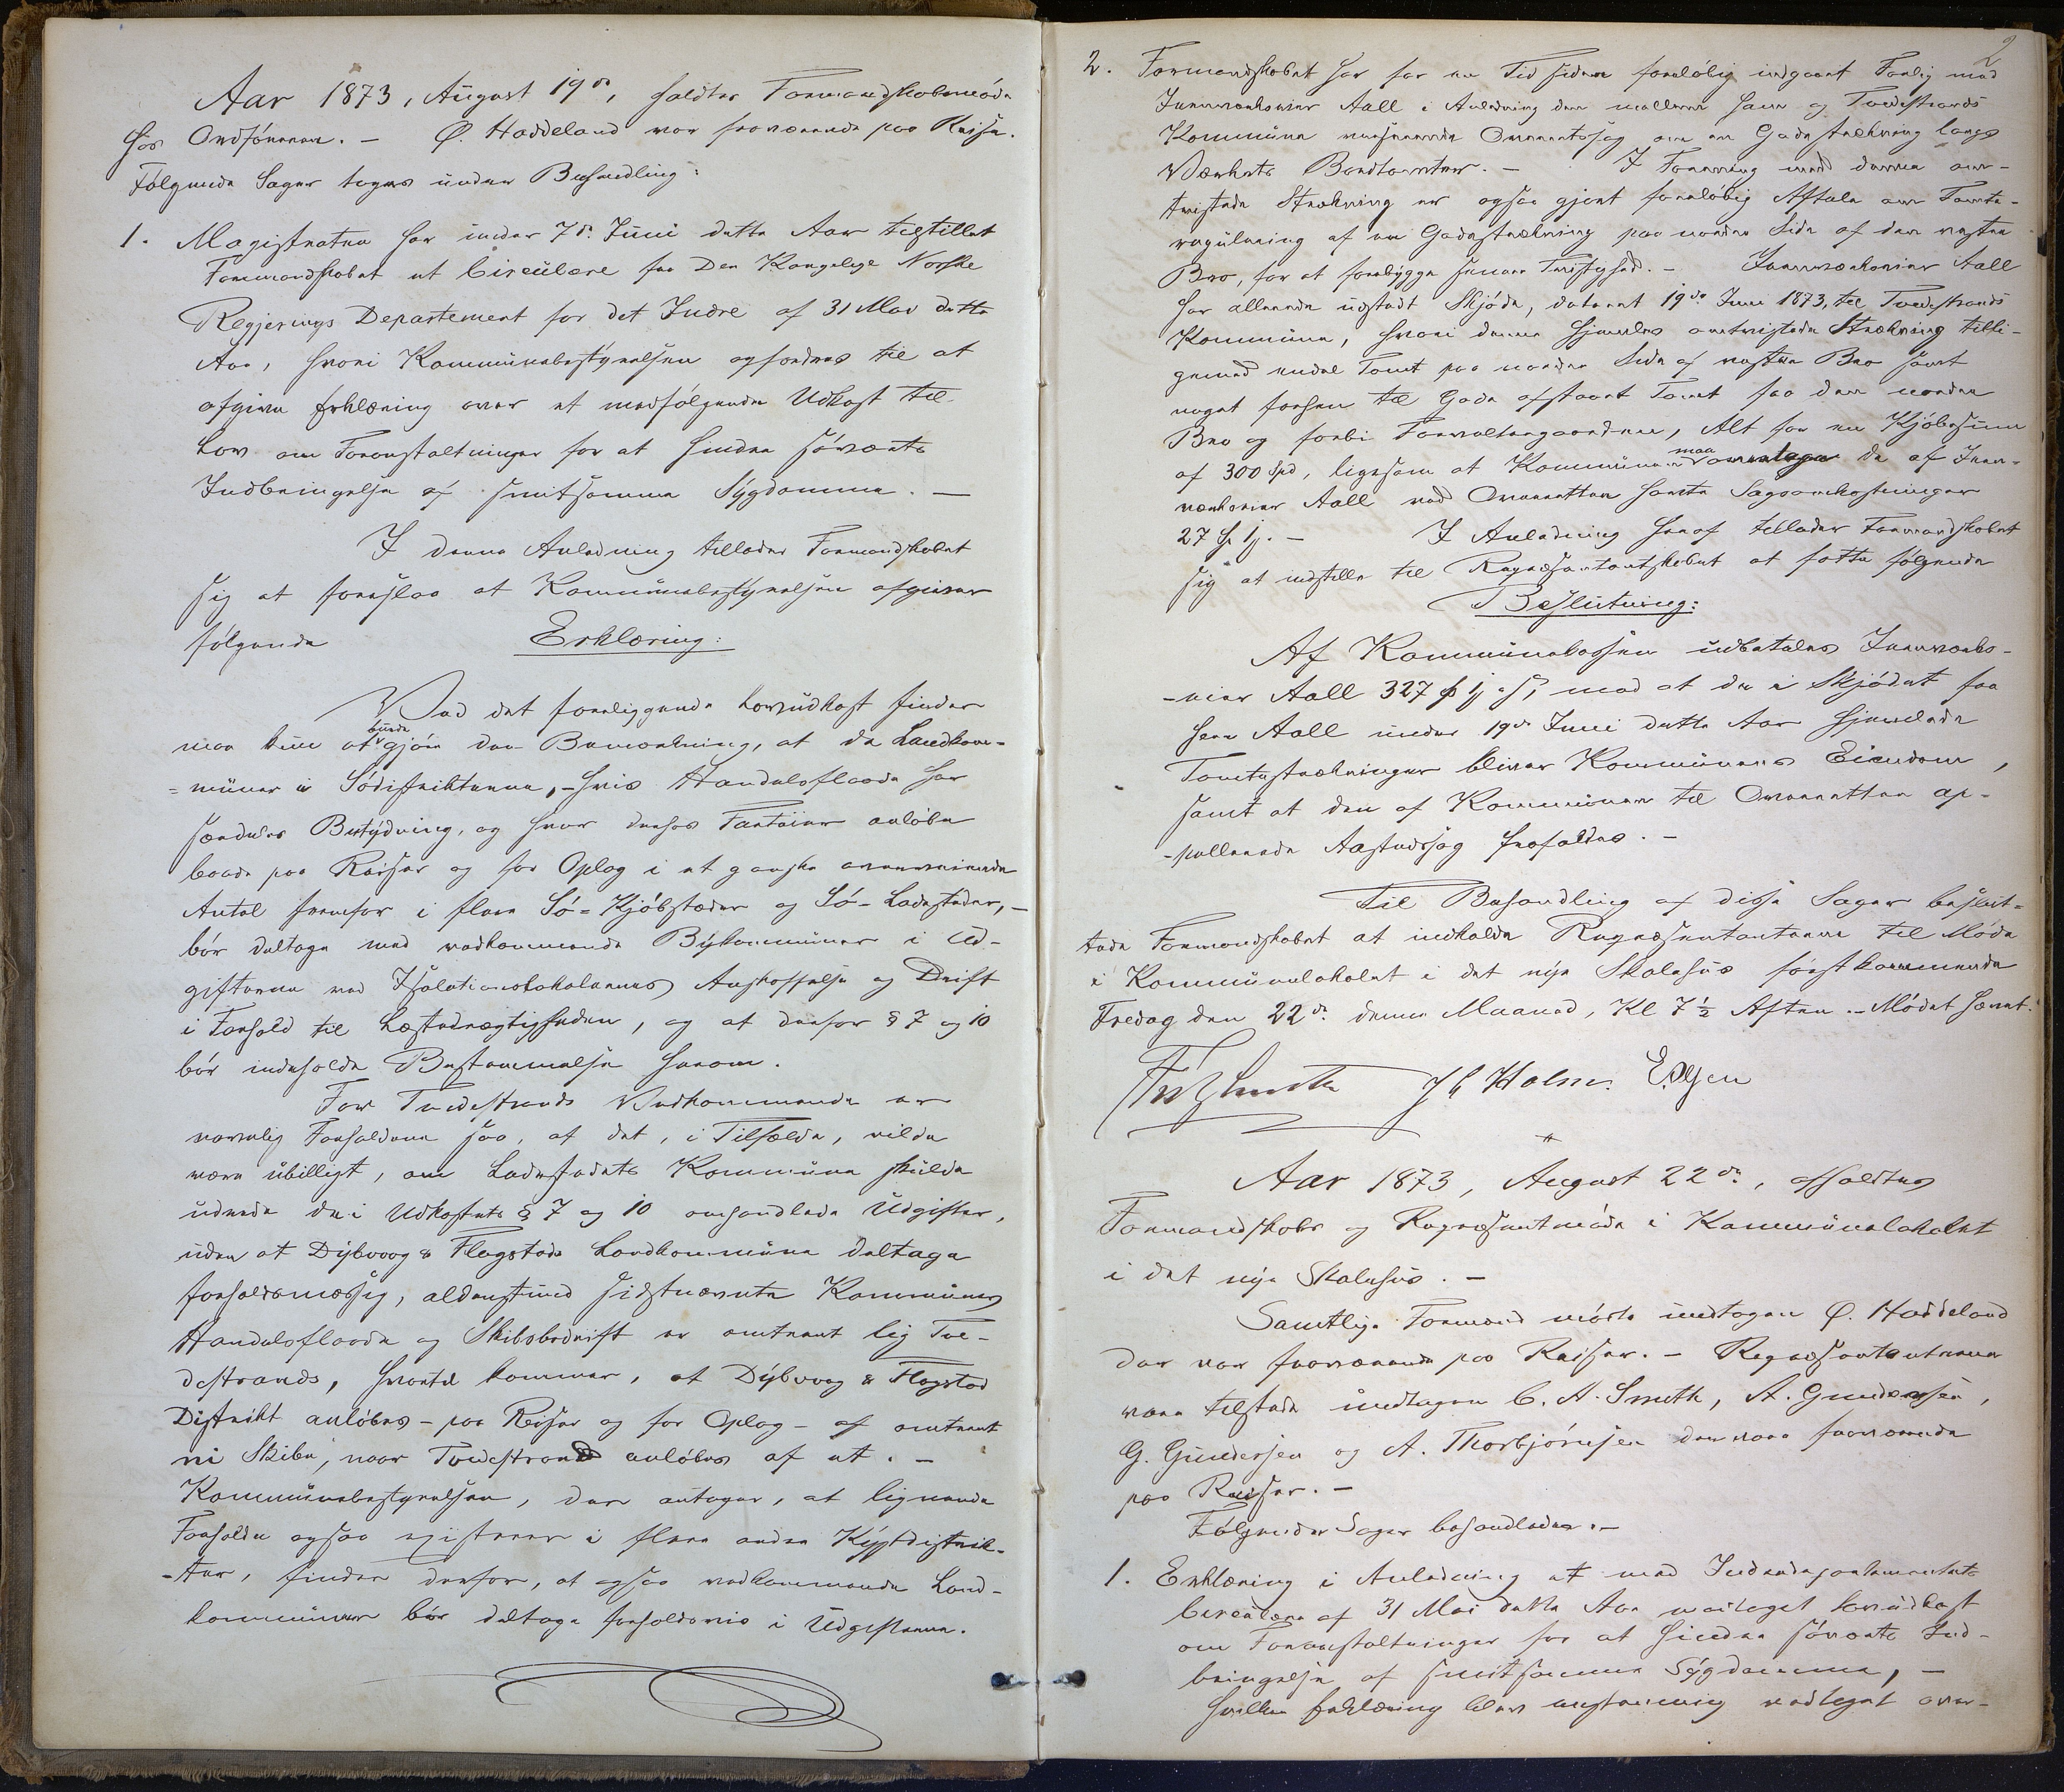 Aar 1873, August 19de, holdtes Formandskabsmöde
hos Ordföreren. – Ø. Haddeland var fraværende paa Reise.
Fölgende Sager toges under Behandling:
1. Magistraten har under 7de Juni dette Aar tilstillet
Formandskabet et Circulære fra Den Kongelige Norske
Regjerings Departement for det Indre af 31 Mai dette
Aar, hvori Kommunebestyrelsen opfordres til at
afgive Erklæring over et medfølgende Udkast til
Lov om Foranstaltninger for at hindre söværts
Indbringelse af smitsomme Sygdomme. –
I denne Anledning tillader Formandskabet
sig at foreslaa at Kommunebestyrelsen afgiver
fölgende Erklæring:
Ved det foreliggende Lovudkast finder
man kun at burde gjöre den Bemærkning, at de Landkom-
=muner i Södistrikterne, – hvis Handelsflaade har
særdeles Betydning, og hvor dens Fartöier anlöbe
baade paa Reiser og for Oplag i et ganske overveiende
Antal fremfor i flere Sö-Kjöbstæder og Sö-Ladesteder, –
bör deltage med vedkommende Bykommuner i Ud-
gifterne ved Isolationslokalernes Anskaffelse og Drift
i Forhold til Læstedrægtigheden, og at derfor § 7 og 10
bör indeholde Bestemmelse herom.
For Tvedestrands Vedkommende er
navnlig Forholdene saa, at det, i Tilfælde, vilde
være ubilligt, om Ladestedets Kommune skulde
udrede de i Udkastets § 7 og 10 omhandlede Udgifter,
uden at Dybvaag & Flagstads Landkommune deltage
forholdsmæssig, aldenstund sidstnævnte Kommunes
Handelsflaade og Skibsbedrift er omtrent lig Tve-
destrands, hvortil kommer, at Dybvaag & Flagstad
Distrikt anlöbes – paa Reiser og for Oplag – af omtrent
ni Skibe, naar Tvedestrand anlöbes af et. –
Kommunebestyrelsen, der antager, at lignende
Forholde ogsaa existerer i flere andre Kystdistrik-
-ter, finder derfor, at ogsaa vedkommende Land-
kommuner bör deltage forholdsvis i Udgifterne.
2
2. Formandskabet har for en Tid siden foreløbig indgaaet Forlig med
Jernværkseier Aall i Anledning den mellem ham og Tvedestrands
Kommune verserende Overretssag om en Gadestrækning langs
Værkets Bondtomter. – I Forening med denne om-
tvistede Strækning er ogsaa gjort foreløbig Aftale om Tomte-
regulering af en Gadestrækning paa nordre Side af den vestre
Bro, for at forebygge senere Tvistighed. – Jernværkseier Aall
har allerede udstedt Skjöde, dateret 19de Juni 1873, til Tvedestrands
Kommune, hvori denne hjemles omtvistede Strækning tilli-
gemed endel Tomt paa nordre Side af vestre Bro samt
noget forhen til Gade afstaaet Tomt fra den nordre
Bro og forbi Forvaltergaardene, Alt for en Kjöbesum
af 300 Spd, ligesom at Kommunen maa overtage de af Jern-
værkseier Aall ved Overretten havte Sagsomkostninger
27 Sp 1 ƒ. – I Anledning heraf tillader Formandskabet
sig at indstille til Repræsentantskabet at fatte fölgende
Beslutning:
Af Kommunekassen udbetales Jernværks-
-eier Aall 327 Sp 1 ƒ, mod at de i Skjödet fra
herr Aall under 19de Juni dette Aar hjemlede
Tomtestrækninger bliver Kommunens Eiendom,
samt at den af Kommunen til Overretten ap-
-pellerede Aastedssag frafaldes. –
Til Behandling af disse Sager beslut-
tede Formandskabet at indkalde Repræsentanterne til Möde
i Kommunelokalet i det nye Skolehus förstkommende
Fredag den 22de denne Maaned, Kl 7 ½ Aften. – Mödet hævet.
J C Holm. E. Olsen
Aar 1873, August 22de, afholdtes
Formandskabs og Repræsentmöde i Kommunelokalet
i det nye Skolehus. –
Samtlige Formænd mödte undtagen Ø. Haddeland
der var fraværende paa Reiser. – Repræsentanterne
vare tilstede undtagen C. A. Smith, A. Gundersen,
G. Gundersen og A. Thorbjörnsen der vare fraværende
paa Reiser. –
Fölgende Sager behandledes. –
1. Erklæring i Anledning et med Indredepartementets
Circulære af 31 Mai dette Aar modtaget Lovudkast
om Foranstaltninger for at hindre söværts Ind-
bringelse af smitsomme Sygdomme, –
hvilken Erklæring blev enstemmig vedtaget over-